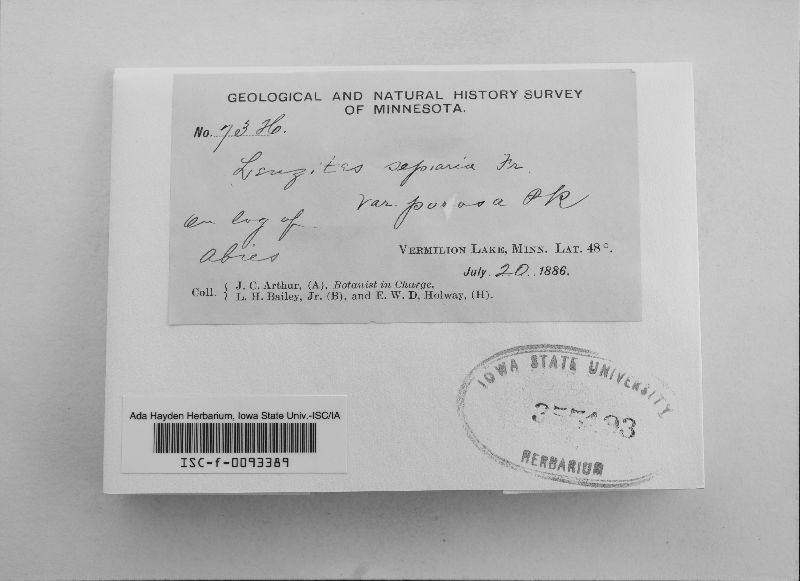 GEOLOGICAL AND NATURAL HISTORY SURVEY
OF MINNESOTA.
No. 73 H.
Lenzites sepiaria Fr.
Var. porosa Pk
on log of
Abies
VERMILION LAKE, MINN. LAT. 48°.
July 20, 1886.
Coll. { J. C. Arthur, (A), Botanist in Charge,
L. H. Bailey, Jr. (B), and E. W. D. Holway, (H).
IOWA STATE UNIVERSITY
HERBARIUM
Ada Hayden Herbarium, Iowa State Univ.-ISC/IA
ISC-f-0093389